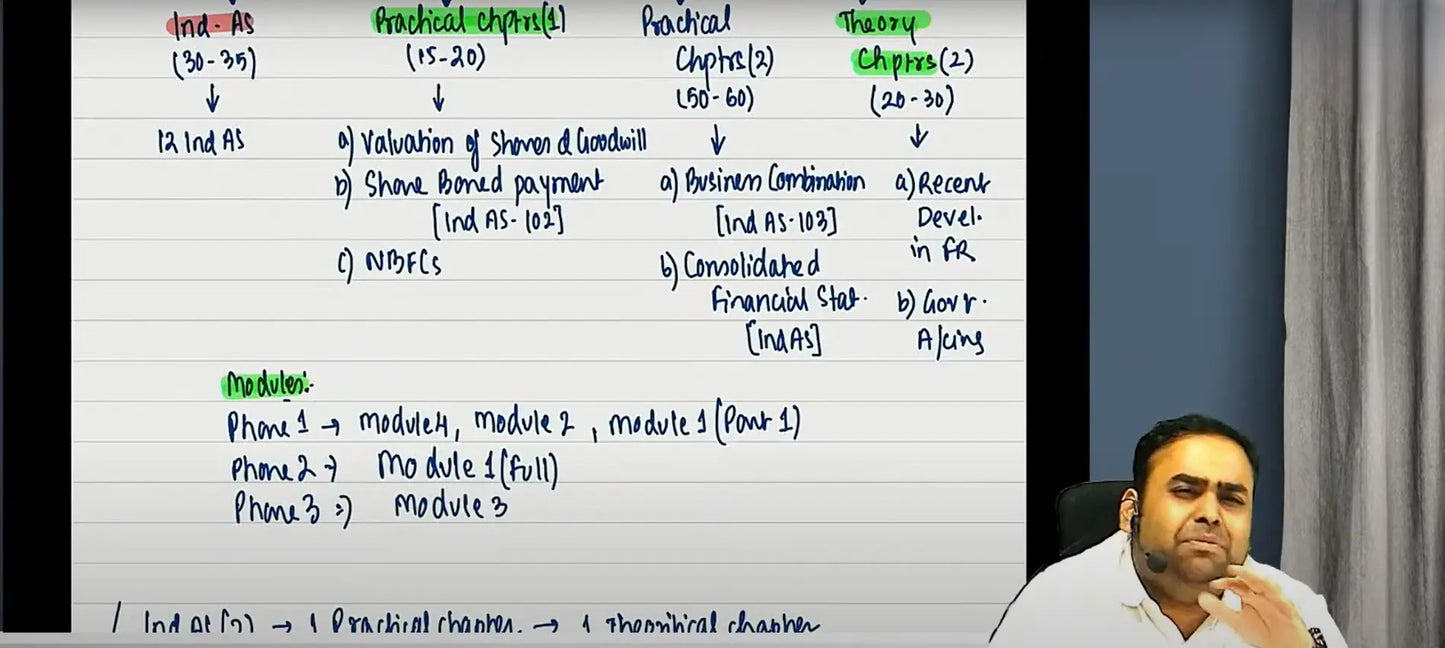 Ind-AS
(30-35)
↓
12 Ind AS
Practical Chptrs(1)
(15-20)
↓
a) Valuation of Shares & Goodwill
b) Share Based payment
[Ind AS-102]
c) NBFCs
Practical
Chptrs(2)
(50-60)
↓
a) Business Combination
[Ind AS-103]
b) Consolidated
Financial Stat.
[Ind AS]
Theory
Chptrs(2)
(20-30)
↓
a) Recent
Devel.
in FR
b) Govr.
A/cing
Modules:-
Phase 1 → Module 4, Module 2, Module 1 (Part 1)
Phase 2 → Module 1 (Full)
Phase 3 → Module 3
→ 1 Practical chapter. → 1 Theoritical chapter